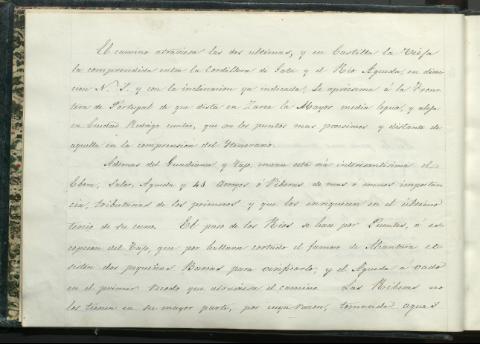 El camino atraviesa las dos ultimas, y en Castilla la Vieja
la comprendida entre la Cordillera de Gata y el Rio Agueda, en direc
cion N. S. y con la inclinacion ya indicada. Se aproxima á la Fron
tera de Portugal de que dista en Zarza la Mayor media legua, y aleja
en Ciudad Rodrigo cuatro, que son los puntos mas proximos y distante de
aquella en la comprension del Itinerario.
Ademas del Guadiana y Tajo, cruzan esta via interesantisima el
Ebon, Salor, Agueda y 41 arroyos ó Riberas de mas ó menos importan
cia, tributarias de los primeros y que los enriquecen en el último
tercio de su curso. El paso de los Rios se hace por Puentes, á es
cepcion del Tajo, que por hallarse cortado el famoso de Alcantara ec
sisten dos pequeñas Barcas para verificarlo, y el Agueda á vado
en el primer recodo que atraviesa el camino. Las Riberas no
los tienen en su mayor parte, por cuya razon, tomando aguas